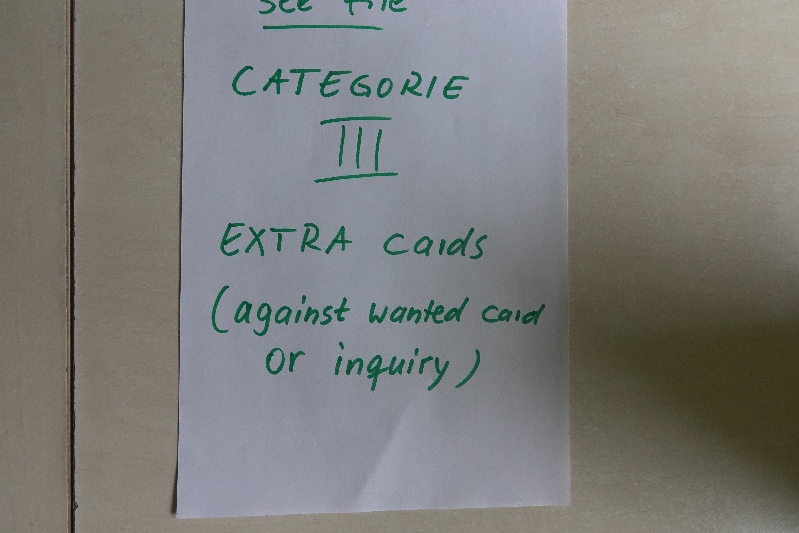 see file
CATEGORIE
III
EXTRA cards
(against wanted card
or inquiry)